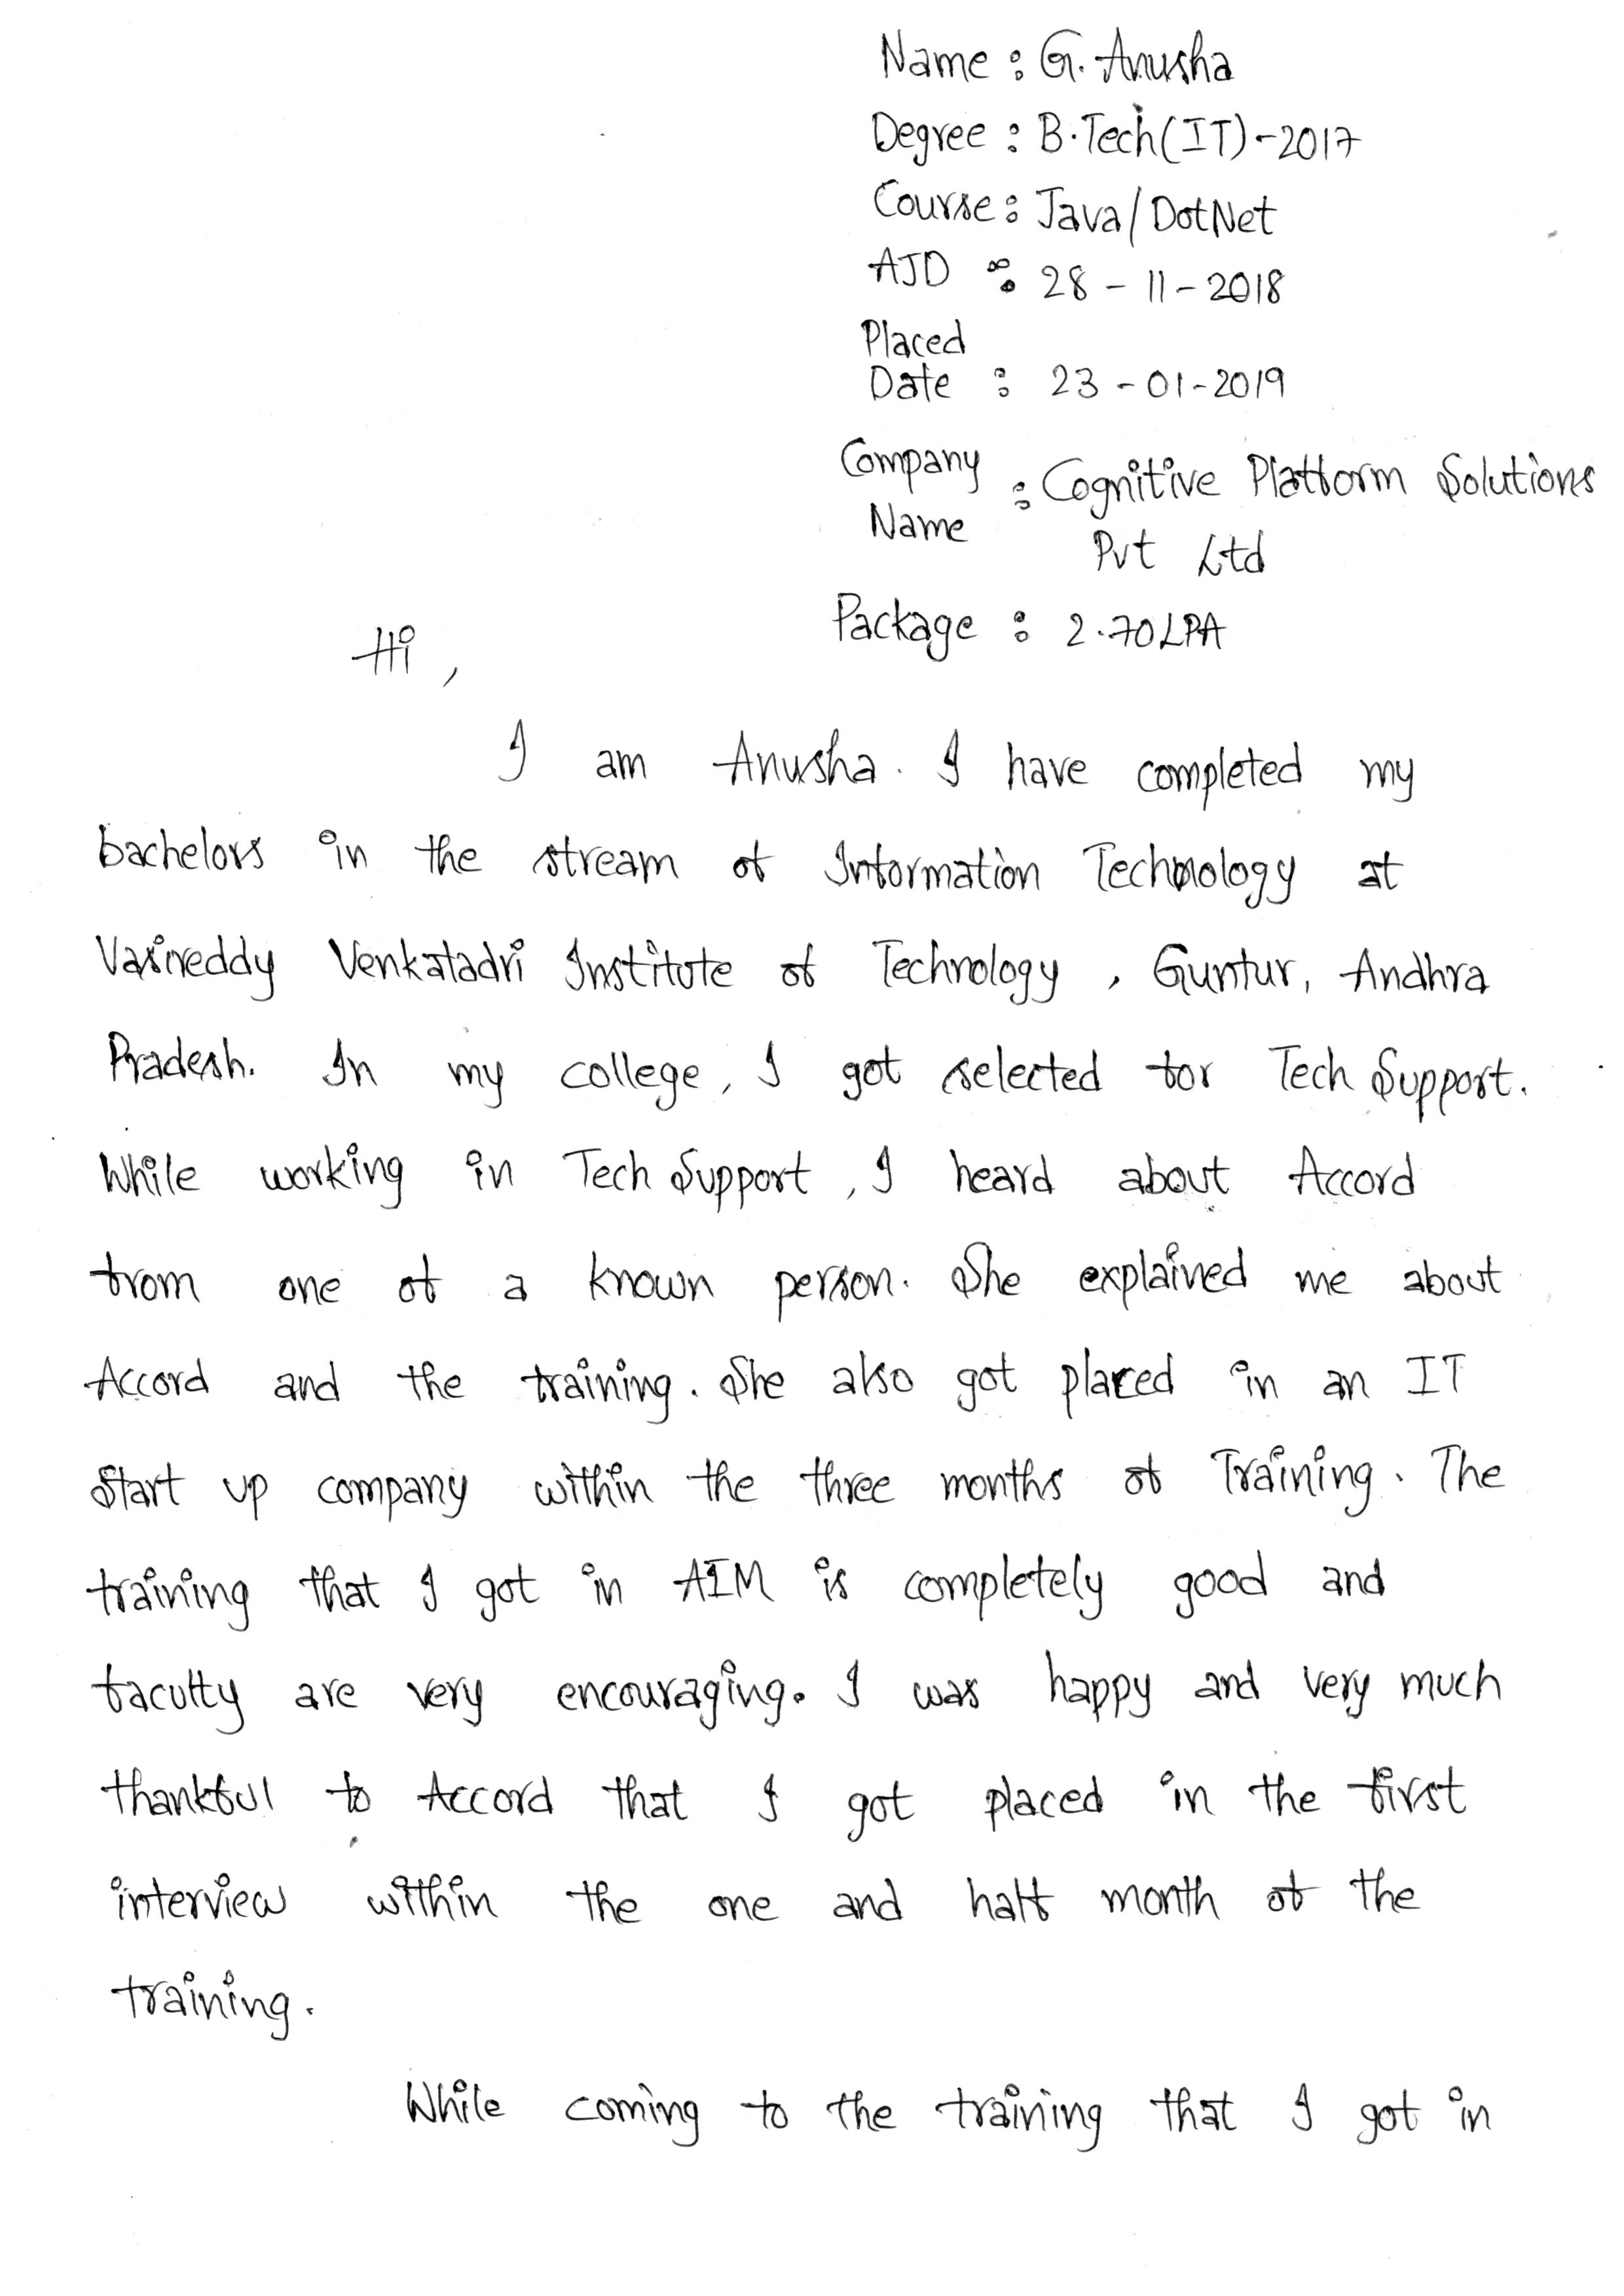 Name : G. Anusha
Degree : B.Tech(IT)-2017
Course : Java/DotNet
AJD : 28 - 11 - 2018
Placed
Date : 23 - 01 - 2019
Company
Name : Cognitive Platform Solutions
Pvt Ltd
Package : 2.70LPA
Hi,
I am Anusha. I have completed my
bachelors in the stream of Information Technology at
Vasireddy Venkatadri Institute of Technology, Guntur, Andhra
Pradesh. In my college, I got selected for Tech Support.
While working in Tech Support, I heard about Accord
from one of a known person. She explained me about
Accord and the training. She also got placed in an IT
Start up company within the three months of Training. The
training that I got in AIM is completely good and
faculty are very encouraging. I was happy and very much
thankful to Accord that I got placed in the first
interview within the one and half month of the
training.
While coming to the training that I got in